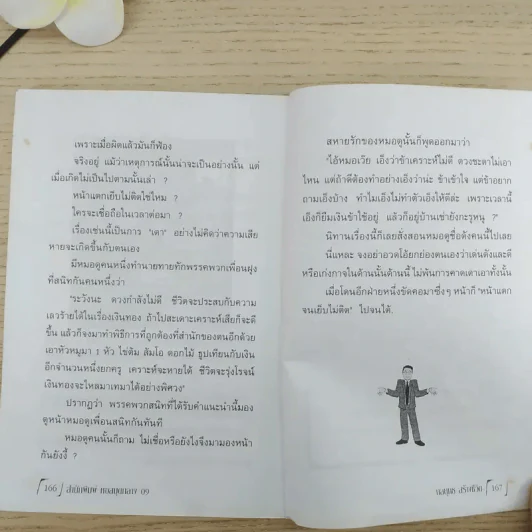 เพราะเมื่อผิดแล้วมันก็ฟ้อง
จริงอยู่ แม้ว่าเหตุการณ์นั้นน่าจะเป็นอย่างนั้น แต่
เมื่อเกิดไม่เป็นไปตามนั้นเล่า ?
หน้าแตกเย็บไม่ติดใช่ไหม ?
ใครจะเชื่อถือในเวลาต่อมา ?
เรื่องเช่นนี้เป็นการ "เดา" อย่างไม่คิดว่าความเสีย
หายจะเกิดขึ้นกับตนเอง
มีหมอดูคนหนึ่งทำนายทายทักพรรคพวกเพื่อนฝูง
ที่สนิทกันคนหนึ่งว่า
"ระวังนะ ดวงกำลังไม่ดี ชีวิตจะประสบกับความ
เลวร้ายได้ในเรื่องเงินทอง ถ้าไปสะเดาะเคราะห์เสียก็จะดี
ขึ้น แล้วก็จงมาทำพิธีการที่ถูกต้องที่สำนักของตนอีกด้วย
เอาหัวหมูมา 1 หัว ไข่ต้ม ส้มโอ ดอกไม้ ธูปเทียนกับเงิน
อีกจำนวนหนึ่งยกครู เคราะห์จะหายได้ ชีวิตจะรุ่งโรจน์
เงินทองจะไหลมาเทมาได้อย่างพิศวง"
ปรากฏว่า พรรคพวกสนิทที่ได้รับคำแนะนำนี้มอง
ดูหน้าหมอดูเพื่อนสนิทกันทันที
หมอดูคนนั้นก็ถาม ไม่เชื่อหรือยังไงจึงมามองหน้า
กันยังงี้ ?
166
สหายรักของหมอดูนั้นก็พูดออกมาว่า
"ไอ้หมอเวัย เอ็งว่าข้าเคราะห์ไม่ดี ดวงชะตาไม่เอา
ไหน แต่ถ้าดีต้องทำอย่างเอ็งว่าน่ะ ข้าเข้าใจ แต่ข้าอยาก
ถามเอ็งบ้าง ทำไมเอ็งไม่ทำตัวเอ็งให้ดีล่ะ เพราะเวลานี้
เอ็งก็ยืมเงินข้าใช้อยู่ แล้วก็อยู่บ้านเช่ายังกะรูหนู ?"
นิทานเรื่องนี้ก็เลยสั่งสอนหมอดูชื่อดังคนนี้ไปเลย
นี่แหละ จงอย่าอวดโอ้ยกย่องตนเองว่าเด่นดังและดี
หรือเก่งกาจในด้านนั้นด้านนี้ ไม่พ้นการคาดเดาเอาทั้งนั้น
เมื่อโดนอีกฝ่ายหนึ่งขัดคอมาซึ่งๆ หน้าก็ "หน้าแตก
จนเย็บไม่ติด" ไปจนได้.
167